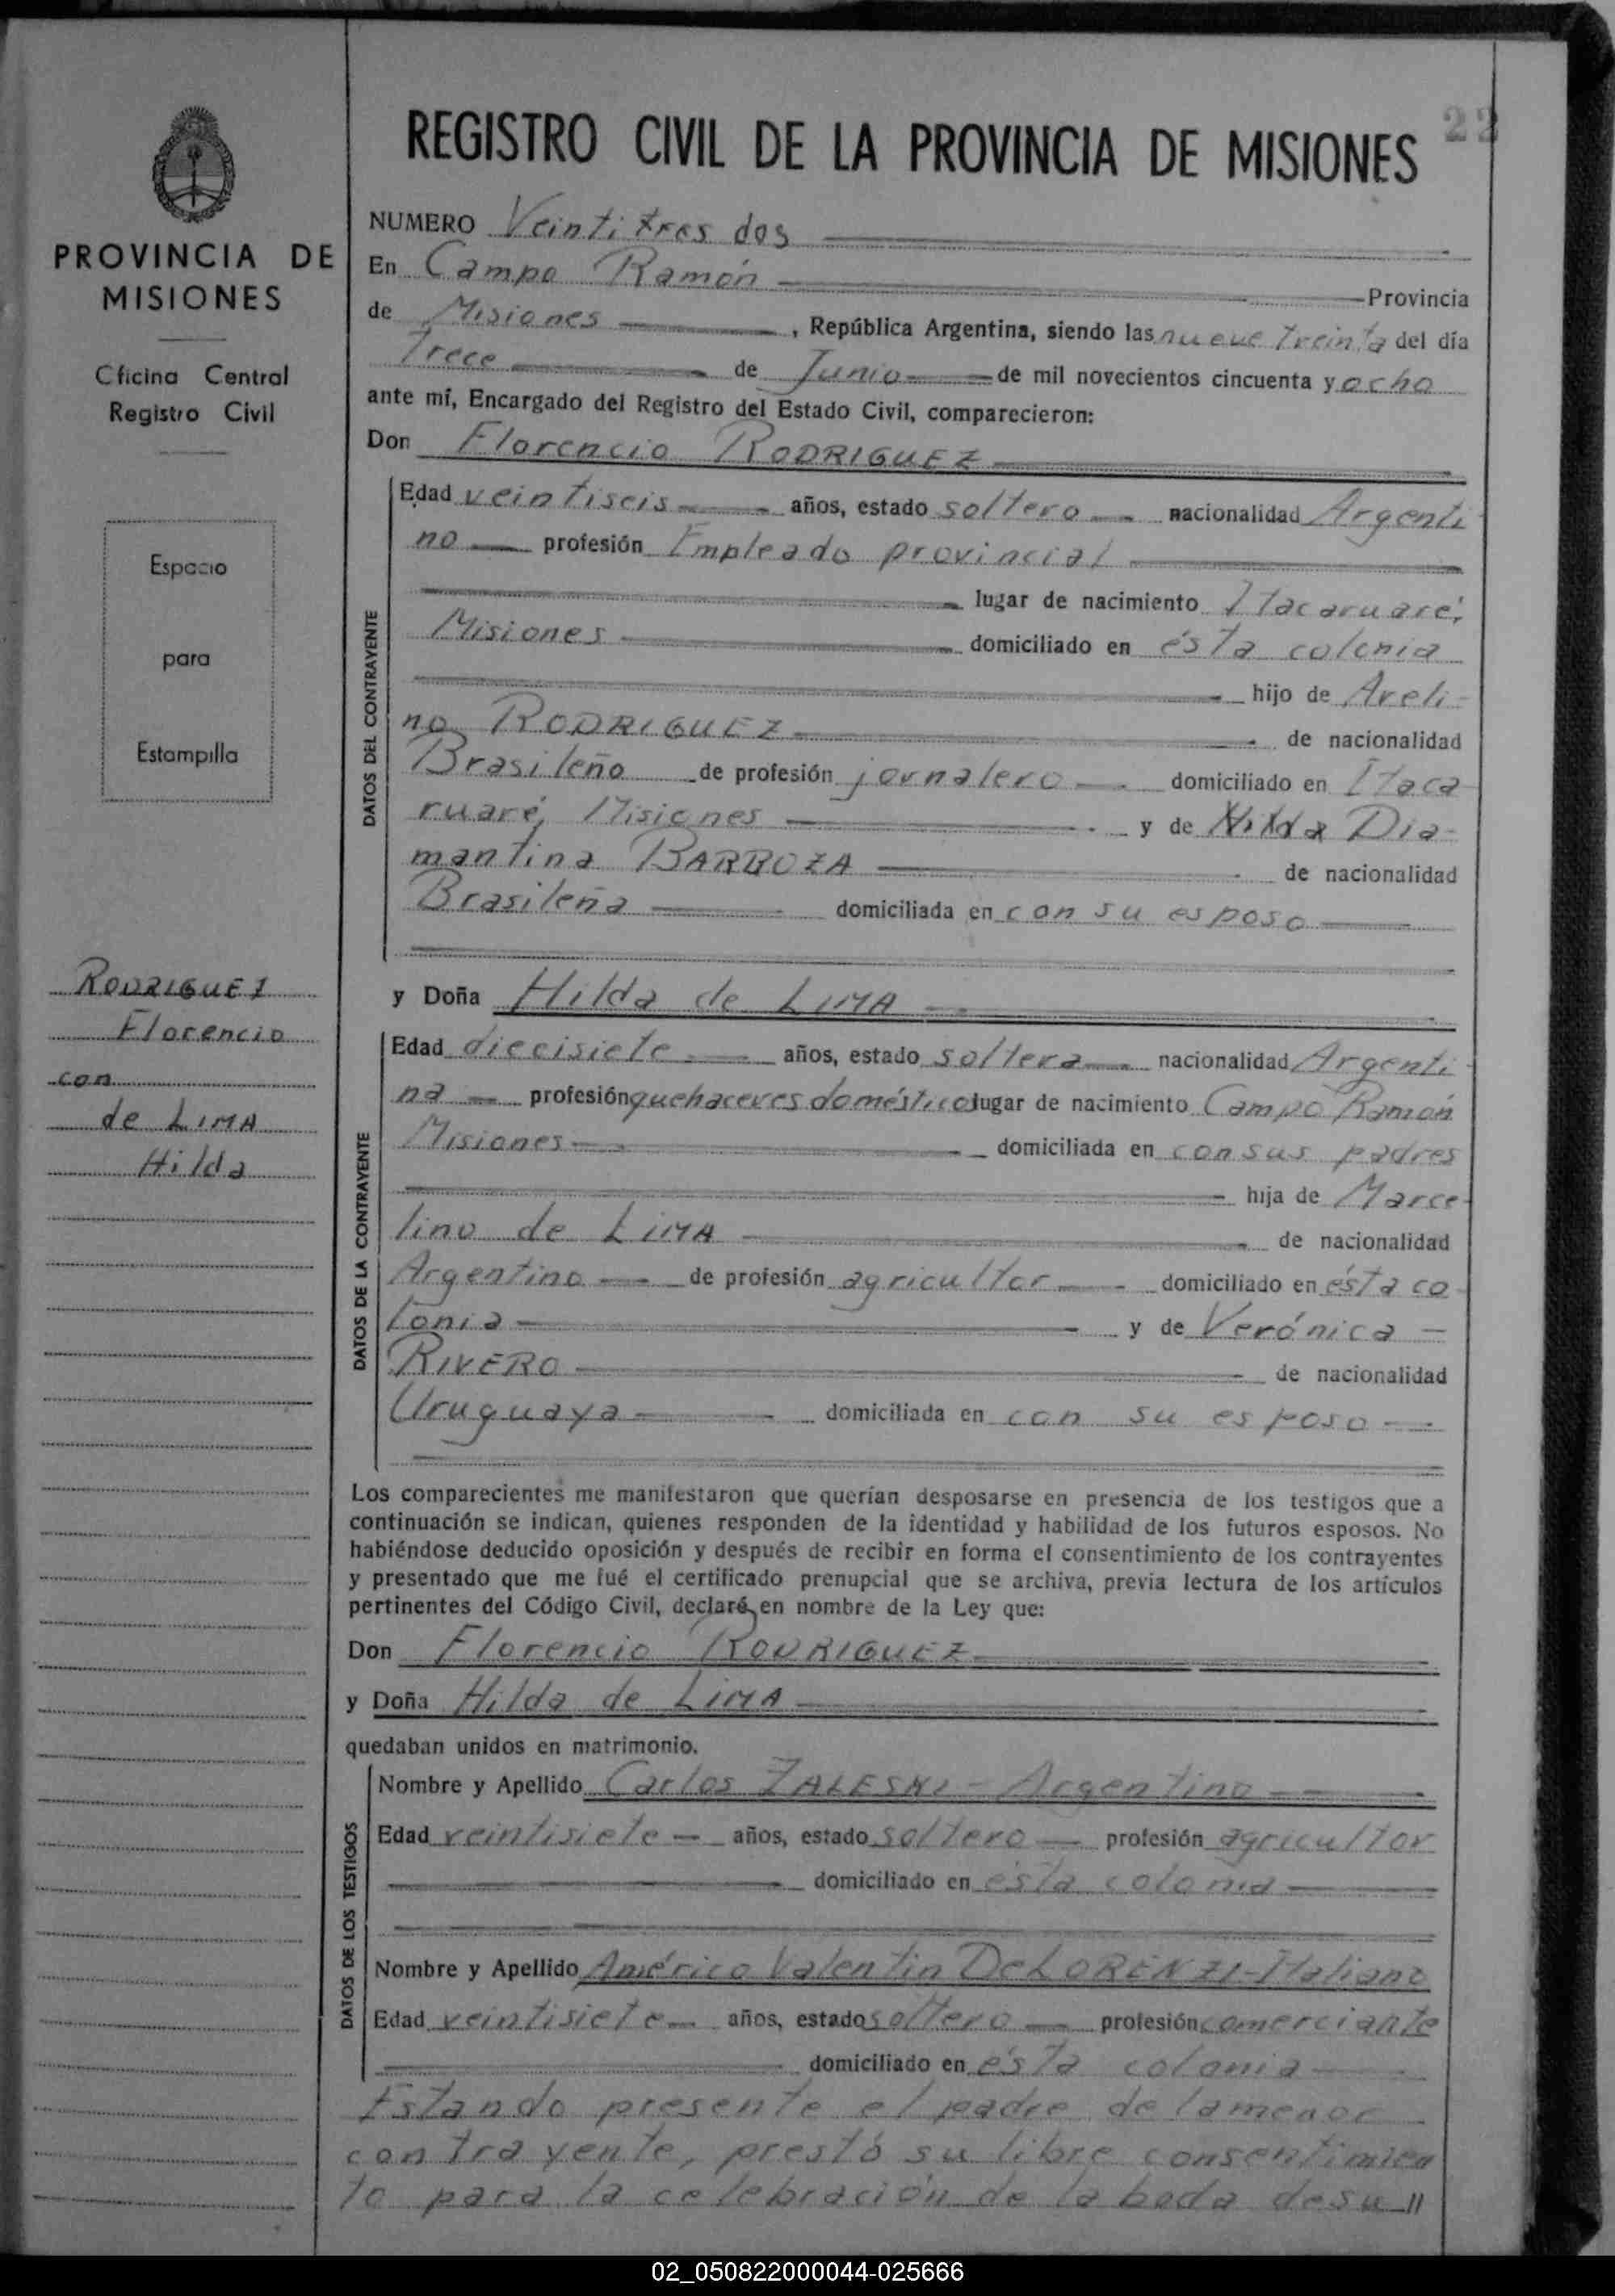 22
REGISTRO CIVIL DE LA PROVINCIA DE MISIONES
PROVINCIA DE
MISIONES
Oficina Central
Registro Civil
Espacio
para
Estampilla
RODRIGUEZ
Florencio
con
de LIMA
Hilda
NUMERO Veinti tres dos
En Campo Ramón Provincia
de Misiones, República Argentina, siendo las nueve treinta del día
Trece de Junio de mil novecientos cincuenta y ocho
ante mí, Encargado del Registro del Estado Civil, comparecieron:
Don Florencio RODRIGUEZ
DATOS DEL CONTRAYENTE
Edad veintiseis años, estado soltero nacionalidad Argenti
no profesión Empleado provincial
lugar de nacimiento Itacaruaré,
Misiones domiciliado en ésta colonia
hijo de Aveli-
no RODRIGUEZ de nacionalidad
Brasileño de profesión jornalero domiciliado en Itaca
ruaré, Misiones y de Dia-
mantina BARBOZA de nacionalidad
Brasileña domiciliada en con su esposo
y Doña Hilda de LIMA
DATOS DE LA CONTRAYENTE
Edad diecisiete años, estado soltera nacionalidad Argenti
na profesión quehaceres domésticos lugar de nacimiento Campo Ramón
Misiones domiciliada en con sus padres
hija de Marce-
lino de LIMA de nacionalidad
Argentino de profesión agricultor domiciliado en ésta co-
lonia y de Verónica -
RIVERO de nacionalidad
Uruguaya domiciliada en con su esposo
Los comparecientes me manifestaron que querían desposarse en presencia de los testigos que a
continuación se indican, quienes responden de la identidad y habilidad de los futuros esposos. No
habiéndose deducido oposición y después de recibir en forma el consentimiento de los contrayentes
y presentado que me fué el certificado prenupcial que se archiva, previa lectura de los artículos
pertinentes del Código Civil, declaré, en nombre de la Ley que:
Don Florencio RODRIGUEZ
y Doña Hilda de LIMA
quedaban unidos en matrimonio.
DATOS DE LOS TESTIGOS
Nombre y Apellido Carlos ZALESKI - Argentino
Edad veintisiete años, estado soltero profesión agricultor
domiciliado en ésta colonia
Nombre y Apellido Américo Valentin DeLORENZI - Italiano
Edad veintisiete años, estado soltero profesión comerciante
domiciliado en ésta colonia
Estando presente el padre de la menor
contrayente, prestó su libre consentimien
to para la celebración de la boda de su //
02_050822000044-025666